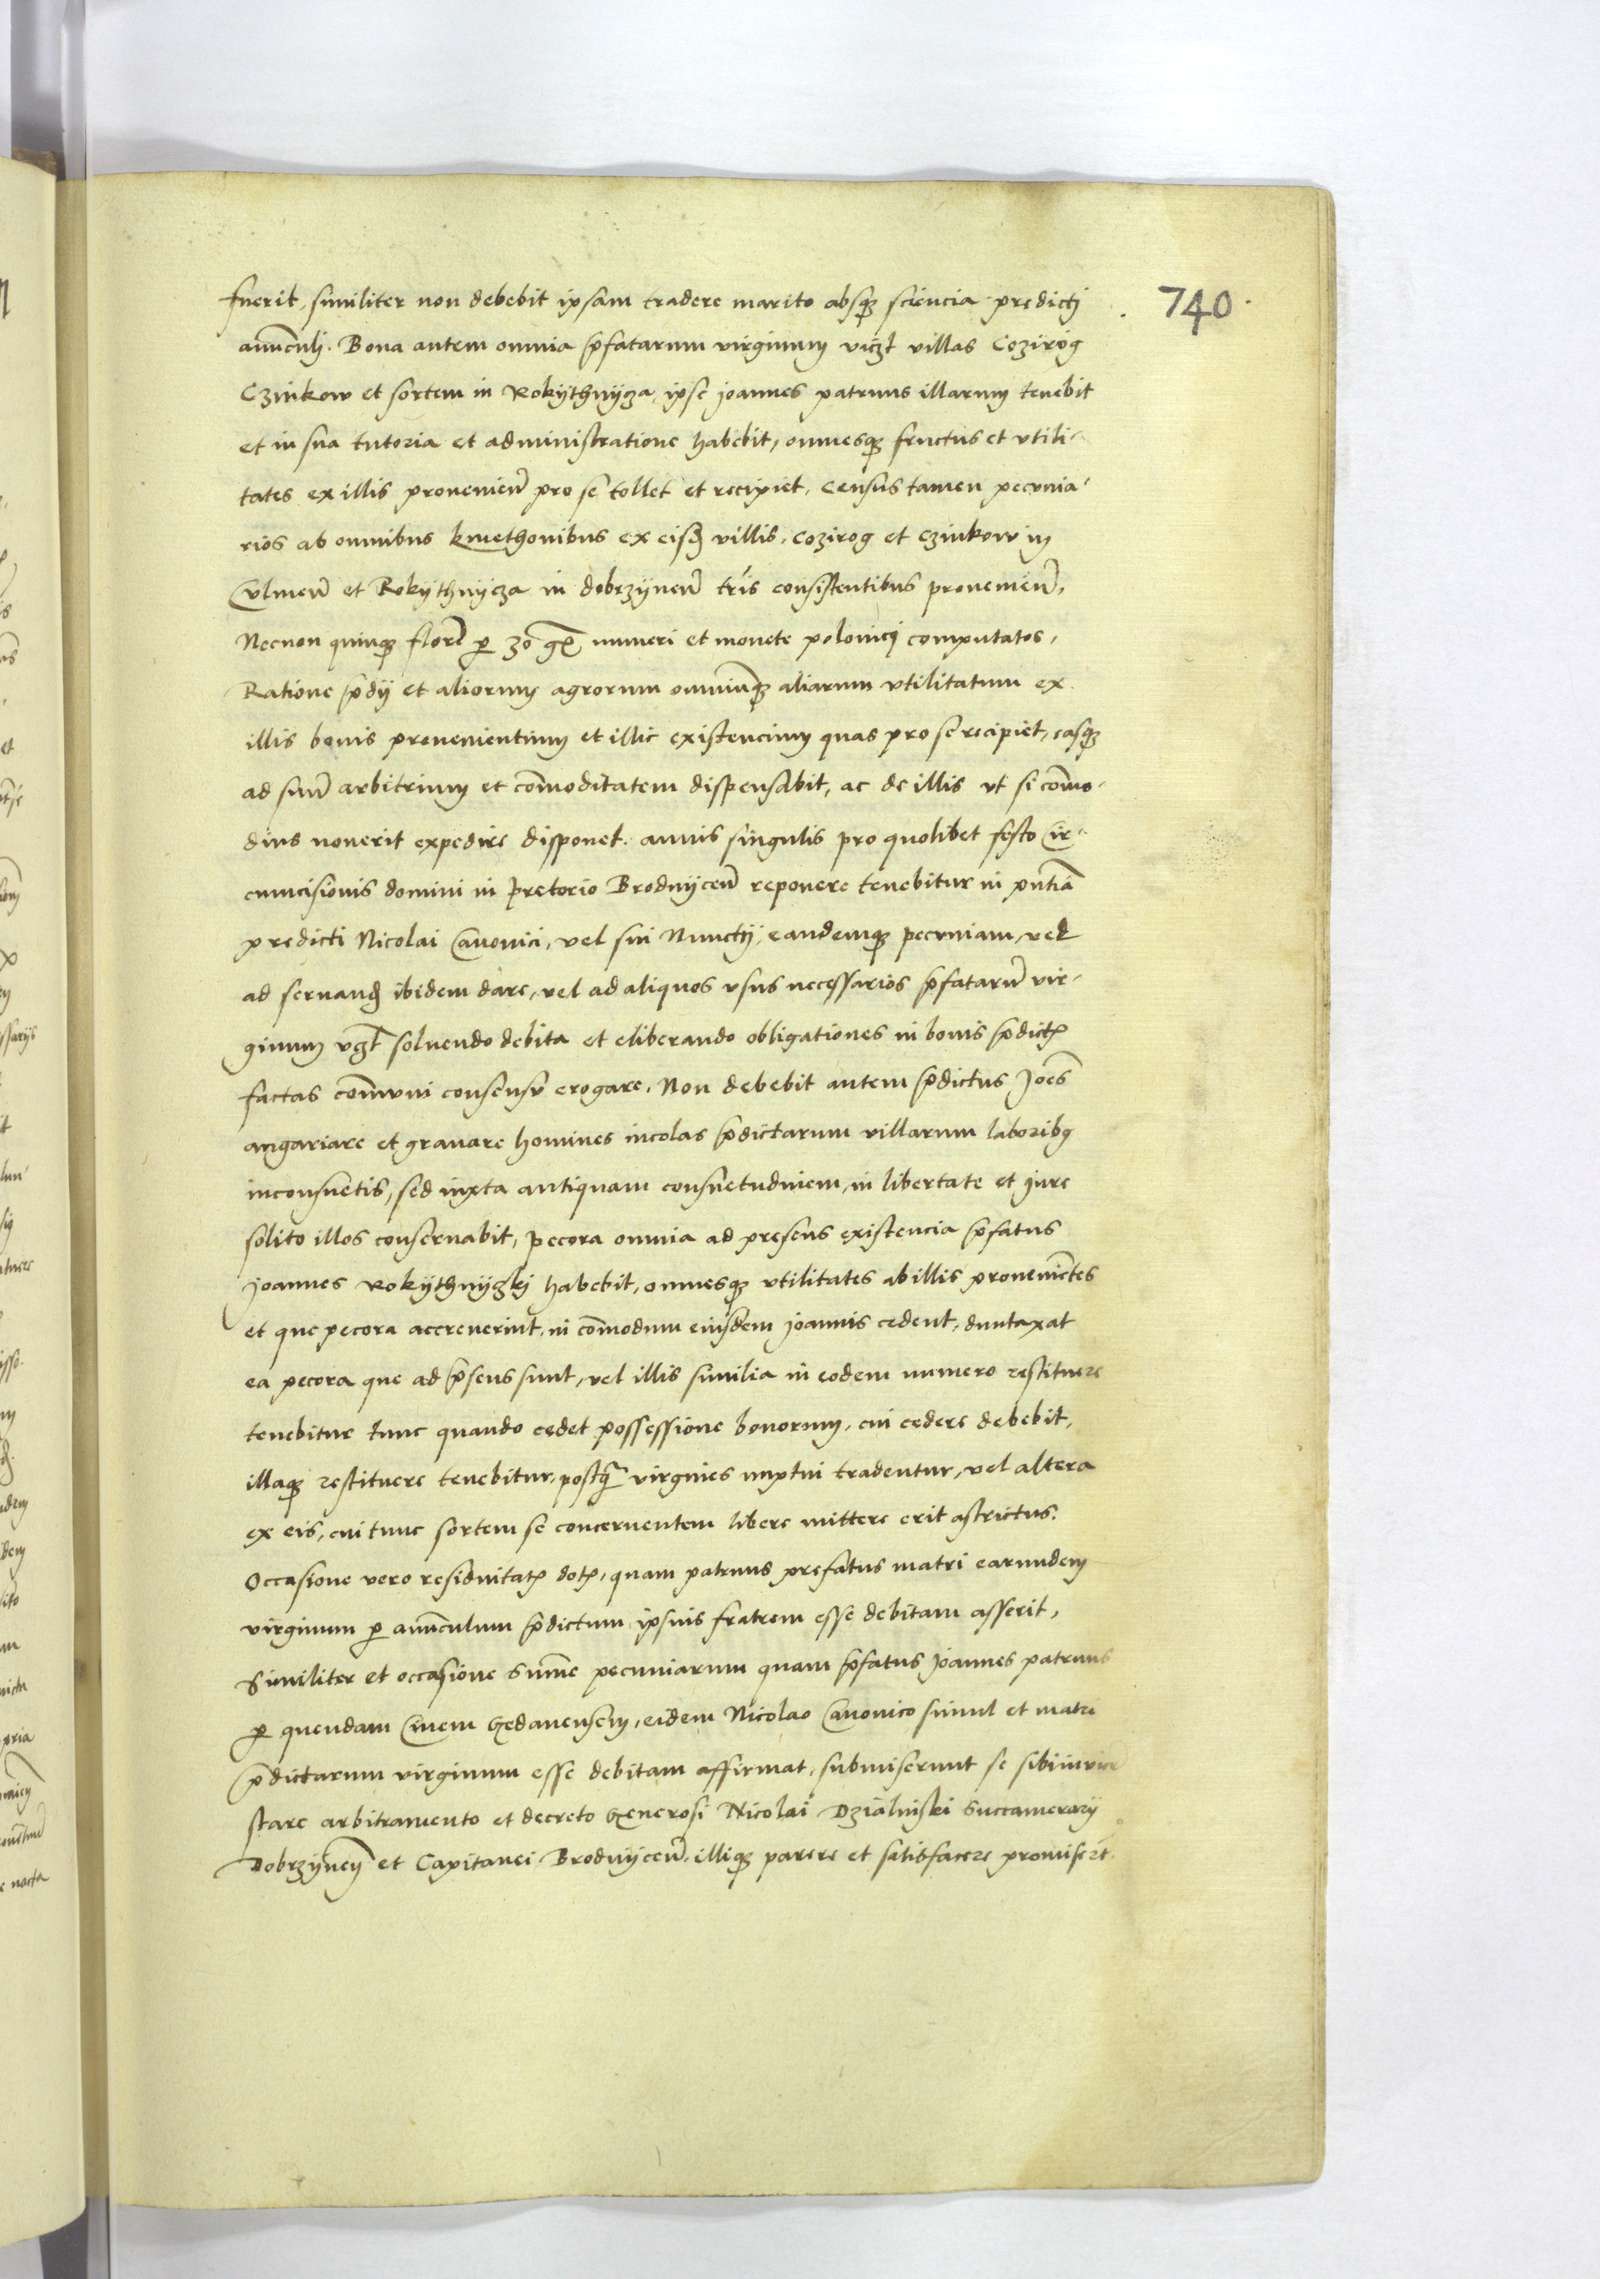 fuerit, similiter non debebit ipsam tradere marito absq̃ sciencia predictj
740
auũculj. Bona autem omnia p̃fatarum virginum viczt villas Cozirog
Czinkow et sortem in Rokythnycza, ipse joannes patruus illarum tenebit
et in sua tutoria et administratione habebit, omnesq̃ fructus et vtili-
tates ex illis provenieñ pro se tollet et recipiet. Census tamen pecunia-
rios ab omnibus kmethonibus ex eisd̃ villis, Cozirog et Czinkow in
Culmeñ et Rokythnycza in dobrzyneñ tr̃is consistentibus provenieñ,
Necnon quinq̃ floreñ per 30 gr̃ numeri et monete polonicj computatos,
Ratione p̃dij et aliorum agrorum omniumq̃ aliarum vtilitatum ex
illis bonis provenientium et illic existencium quas pro se recipiet, easq̃
ad suũ arbitrium et com̃oditatem dispensabit, ac de illis vt si com̃o-
dius noverit expedire disponet. annis singulis pro quolibet festo Cir-
cumcisionis domini in pretorio Brodnyceñ reponere tenebitur in pñtia
predicti Nicolai Canonici, vel sui Nunctij, eandemq̃ pecuniam, vel
ad servand̃ ibidem dare, vel ad aliquos vsus necessarios p̃fatarũ vir-
ginum vgt̃ soluendo debita et eliberando obligationes in bonis p̃dict̃
factas com̃vni consensv erogare. Non debebit autem p̃dictus Joẽs
angariare et gravare homines incolas p̃dictarum villarum laborib9
inconsuetis, sed iuxta antiquam consuetudinem, in libertate et jure
solito illos conservabit, pecora omnia ad presens existencia p̃fatus
Joannes Rokythnyczkj habebit, omnesq̃ vtilitates ab illis proveniẽtes
et que pecora accreverint, in com̃odum eiusdem joannis cedent, duntaxat
ea pecora que ad p̃sens sunt, vel illis similia in eodem numero restituere
tenebitur tunc quando cedet possessione bonorum, cui cedere debebit,
illaq̃ restituere tenebitur, postq̃ virgines nuptui tradentur, vel altera
ex eis, cui tunc sortem se concernentem libere mittere erit astrictus.
Occasione vero residuitat̃ dot̃, quam patruus prefatus matri earundem
virginum per auũculum p̃dictum ipsius fratrem esse debitam asserit,
Similiter et occasione sum̃e pecuniarum quam p̃fatus joannes patruus
per quendam Civem Gedanensem, eidem Nicolao Canonico simul et matri
p̃dictarum virginum esse debitam affirmat, submiserunt se sibiinvicẽ
stare arbitramento et decreto Generosi Nicolai Dzialinski Succamerarij
Dobrzyneñ et Capitanei Brodnyceñ, illiq̃ parere et satisfacere promiser̃t.